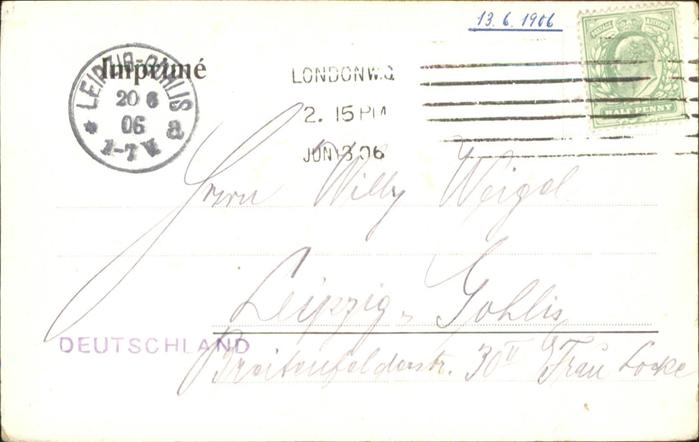 13.6.1906
POSTAGE REVENUE
HALF PENNY
Imprimé
LEIPZIG-GOHLIS
20 6
06
1-7 V
* a
LONDON W.C.
2. 15 PM
JUN 13 06
Herrn Willy Weigel
Leipzig-Gohlis
DEUTSCHLAND
Breitenfelderstr. 30 II Frau Locke